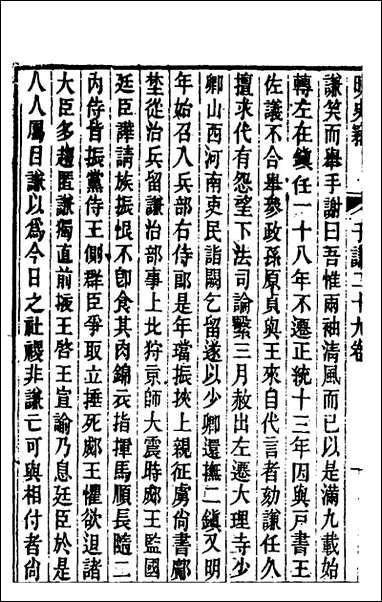 明史竊 于謙二十九卷
謙笑而舉手謝曰吾惟兩袖清風而已以是滿九載始
轉左在鎮任一十八年不遷正統十三年因與戶書王
佐議不合舉參政孫原貞與王來自代言者劾謙任久
擅求代有怨望下法司論繫三月赦出左遷大理寺少
卿山西河南吏民詣闕乞留遂以少卿還撫二鎮又明
年始召入兵部右侍郎是年璫振挾上親征虜尚書鄺
埜從治兵留謙治部事上北狩京師大震時郕王監國
廷臣譁請族振恨不卽食其肉錦衣指揮馬順長隨二
內侍皆振黨侍王側群臣爭取立捶死郕王懼欲諸
大臣多趨匿謙獨直前掖王啓王宣諭乃息廷臣於是
人人屬目謙以爲今日之社稷非謙亡可與相付者尚